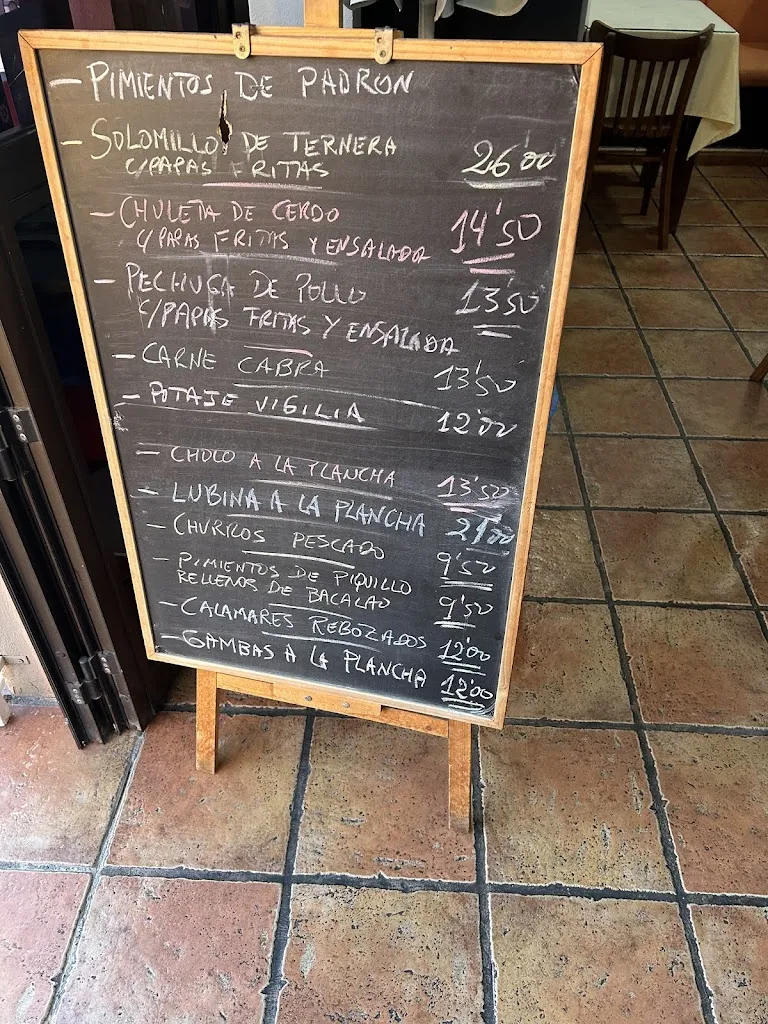 - PIMIENTOS DE PADRON
- SOLOMILLO DE TERNERA 26'00
C/PAPAS FRITAS
- CHULETA DE CERDO 14'50
C/PAPAS FRITAS Y ENSALADA
- PECHUGA DE POLLO 13'50
C/PAPAS FRITAS Y ENSALADA
- CARNE CABRA 13'50
- POTAJE VIGILIA 12'00
- CHOCO A LA PLANCHA 13'50
- LUBINA A LA PLANCHA 21'00
- CHURROS PESCADO 9'50
- PIMIENTOS DE PIQUILLO
RELLENOS DE BACALAO 9'50
- CALAMARES REBOZADOS 12'00
- GAMBAS A LA PLANCHA 12'00